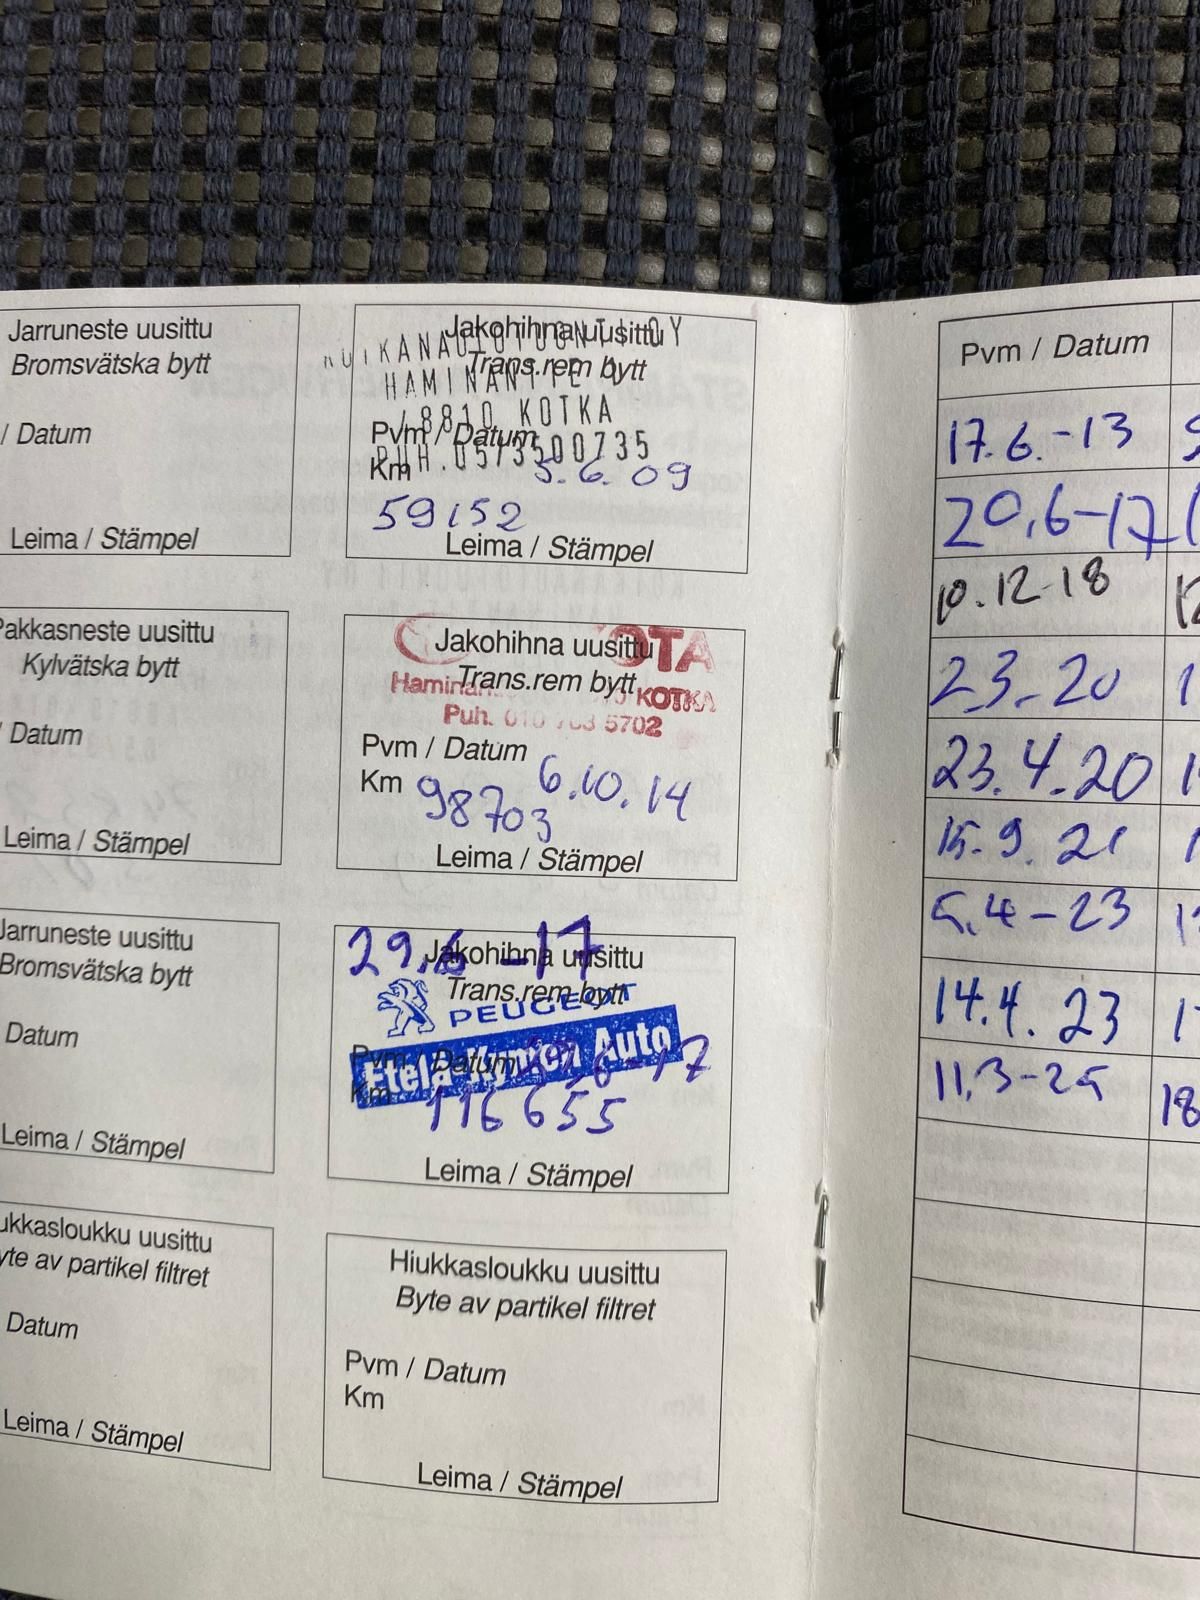 Jarruneste uusittu
Bromsvätska bytt
/ Datum
Leima / Stämpel
Jakohihna uusittu
KANAUTOTUONTI OY
Trans.rem bytt
HAMINANTIE
8810 KOTKA
Pvm / Datum
PUH.05/3500735
Km 5.6.09
59152
Leima / Stämpel
Pakkasneste uusittu
Kylvätska bytt
/ Datum
Leima / Stämpel
Jakohihna uusittu
OTA
Trans.rem bytt
KOTKA
Puh. 010 5702
Pvm / Datum
Km 98703 6.10.14
Leima / Stämpel
Jarruneste uusittu
Bromsvätska bytt
Datum
Leima / Stämpel
29.6-17
Jakohihna uusittu
Trans.rem bytt
PEUGEOT
Pvm / Datum
Etelä-Kymen Auto
Km 116655
Leima / Stämpel
ukkasloukku uusittu
yte av partikel filtret
Datum
Leima / Stämpel
Hiukkasloukku uusittu
Byte av partikel filtret
Pvm / Datum
Km
Leima / Stämpel
Pvm / Datum
17.6.-13
20.6-17
10.12-18
23.4.20
15.9.21
5.4-23
14.4.23
11.3-25 18